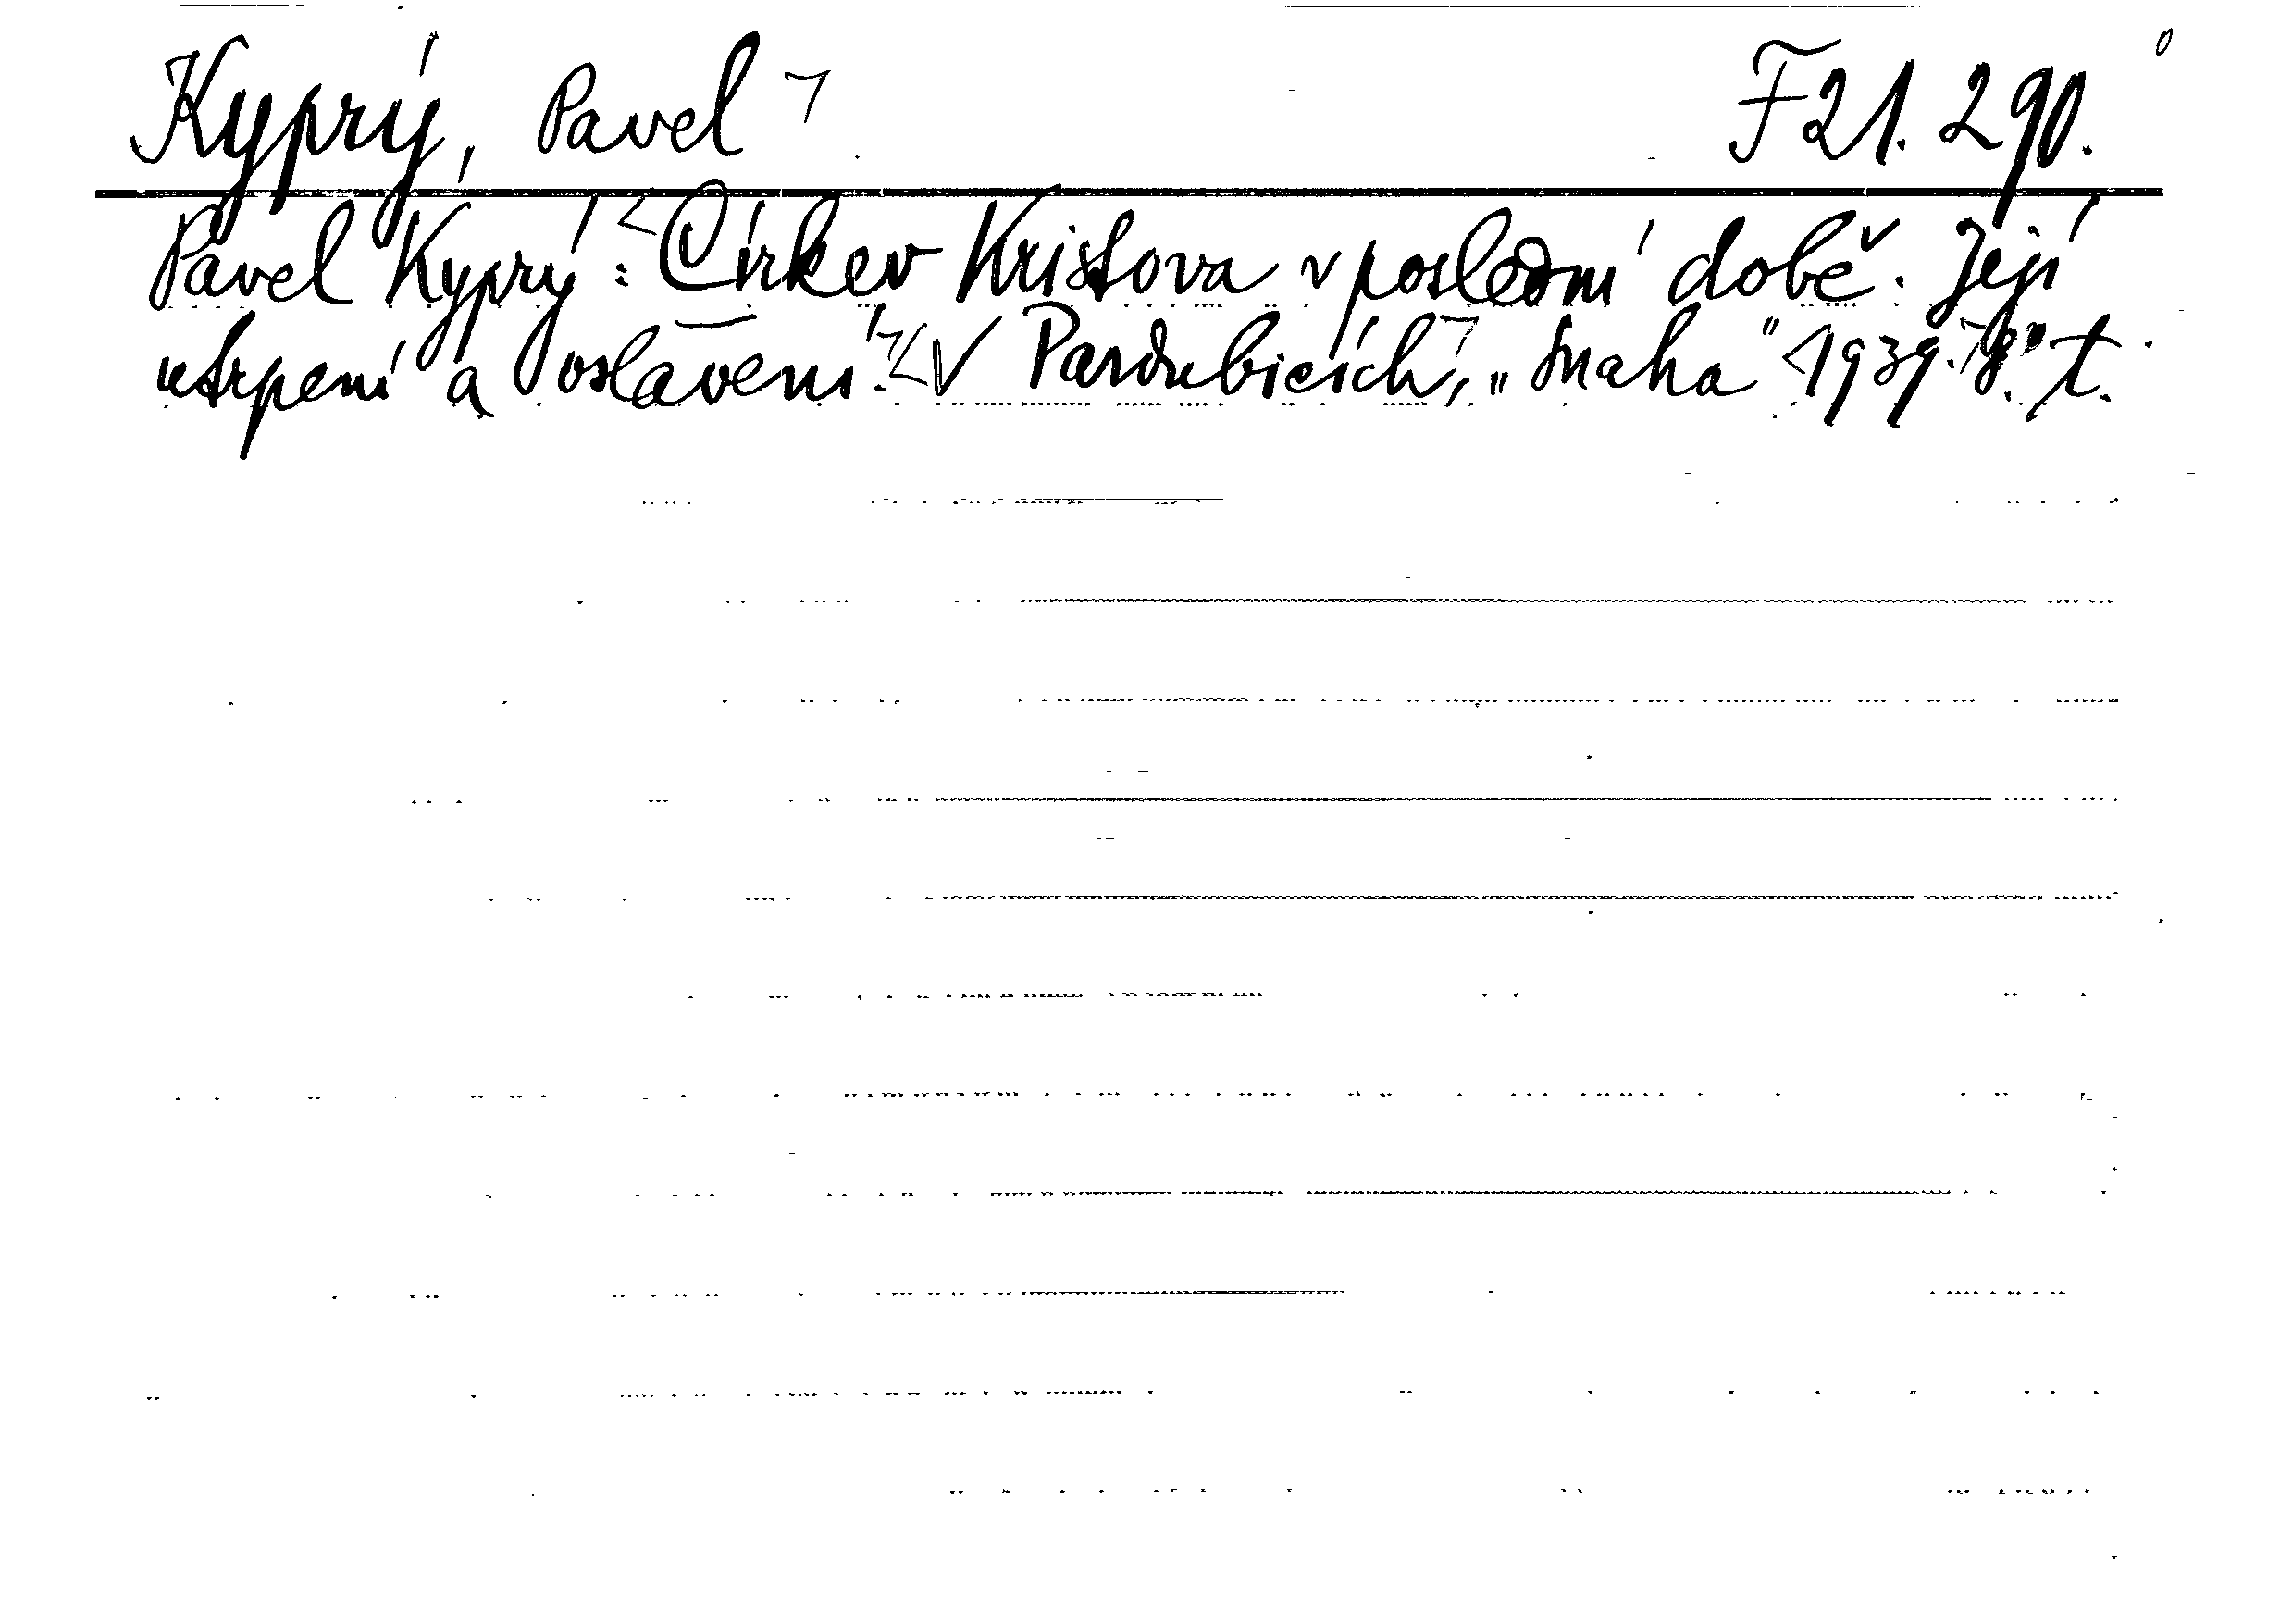 Kyprý, Pavel F 21.290.
Pavel Kyprý: Církev Kristova v poslední době. Její
utrpení a oslavení. V Pardubicích, „Snaha" 1939. 8° t.